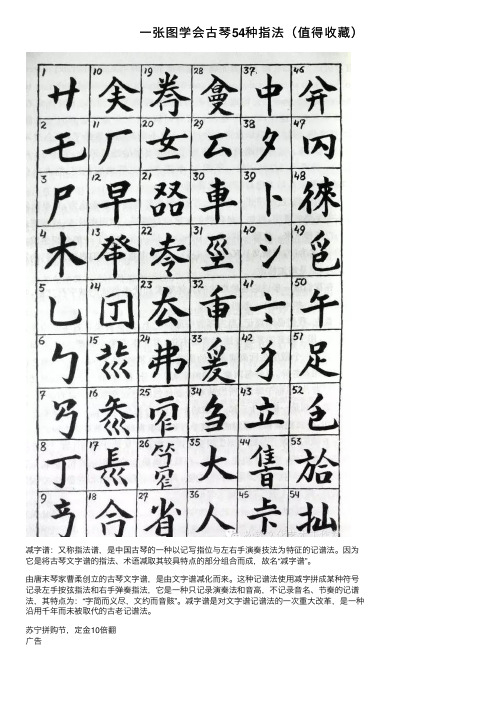 一张图学会古琴54种指法（值得收藏）
1 廾 10 𡗗 19 10 28 37. 中 46
2 乇 11 厂 20 29 厶 38 夕 47
3 尸 12 早 21 30 車 39 卜 48 徠
4 木 13 22 31 40 氵 49
5 乚 14 23 厷 32 41 亠 50 午
6 勹 15 24 弗 33 爰 42 犭 51 足
7 16 25 34 刍 43 立 52
8 丁 17 26 35 大 44 53
9 18 合 27 省 36 人 45 54 拙
减字谱：又称指法谱，是中国古琴的一种以记写指位与左右手演奏技法为特征的记谱法。因为
它是将古琴文字谱的指法、术语减取其较具特点的部分组合而成，故名“减字谱”。
由唐末琴家曹柔创立的古琴文字谱，是由文字谱减化而来。这种记谱法使用减字拼成某种符号
记录左手按弦指法和右手弹奏指法，它是一种只记录演奏法和音高，不记录音名、节奏的记谱
法，其特点为：“字简而义尽，文约而音赅”。减字谱是对文字谱记谱法的一次重大改革，是一种
沿用千年而未被取代的古老记谱法。
苏宁拼购节，定金10倍翻
广告